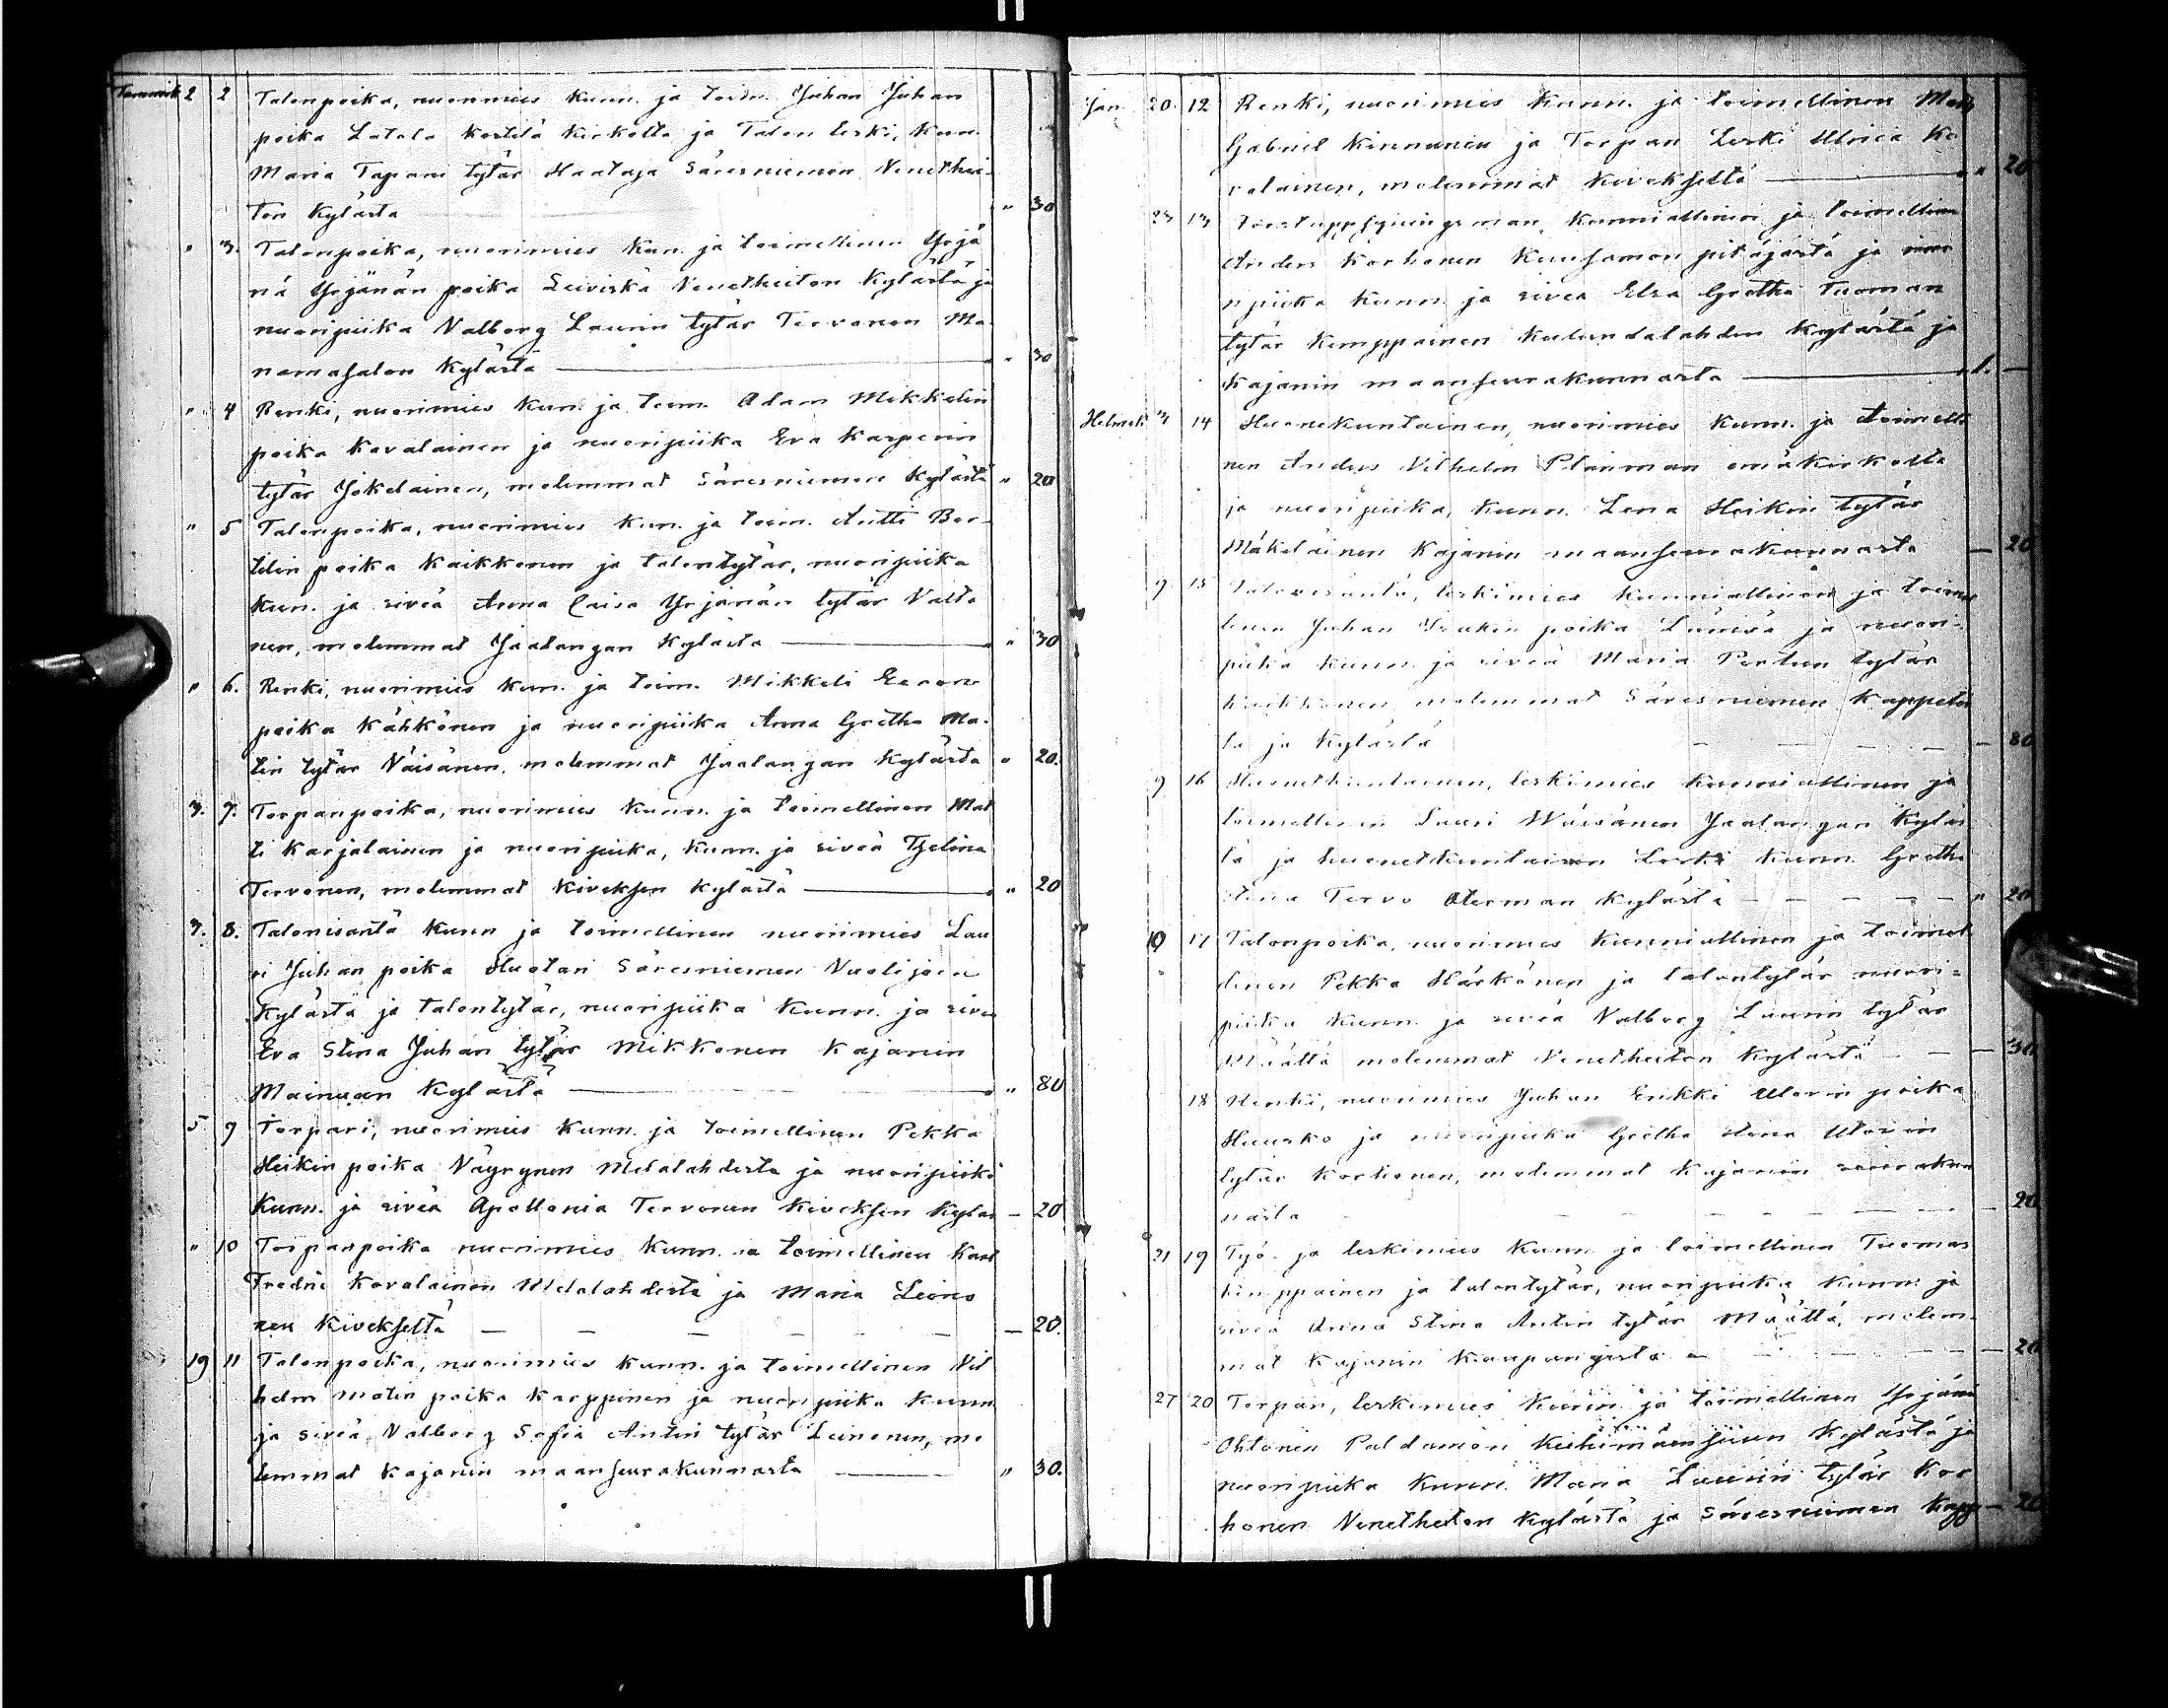 Tammik 2 2 Talonpoika, nuorimies kunn. ja toim. Juhan Juhan
poika Latola Kestilä kirkolta ja Talon leski, kun.
Maria Tapani tytär Haataja Säresniemen Venethei-
ton kylästä " 30
" 3. Talonpoika, nuorimies kun. ja toimellinen Yrjä
nä Yrjänän poika Leiviskä Venetheiton kylästä ja
nuoripiika Valborg Laurin tytär Tervonen Ma-
namasalon kylästä " 30
" 4 Renki, nuorimies kun. ja toim. Adam Mikkelin
poika Kovalainen ja nuoripiika Eva Kasperin
tytär Jokelainen, molemmat Säresniemen kylästä " 20
" 5 Talonpoika, nuorimies kun. ja toim. Antti Ber-
tilin poika Kaikkonen ja talontytär, nuoripiika
kun. ja siveä Anna Caisa Yrjänän tytär Valta
nen, molemmat Jaalangan kylästä " 30
" 6. Renki, nuorimies kun. ja toim. Mikkeli Eeron
poika Kähkönen ja nuoripiika Anna Gretha Ma-
tin tytär Väisänen, molemmat Jaalangan kylästä " 20.
3. 7. Torpanpoika, nuorimies kunn. ja toimellinen Mat
ti Karjalainen ja nuoripiika, kunn. ja siveä Tzelina
Tervonen, molemmat Kiveksen kylästä " 20
3. 8. Talonisäntä kunn ja toimellinen nuorimies Lau
ri Juhan poika Huotari Säresniemen Vuolijoen
kylästä ja talontytär, nuoripiika kunn. ja siveä
Eva Stina Juhan tytär Mikkonen Kajanin
Mainuan kylästä " 80
5 9 Torpari, nuorimies kunn. ja toimellinen Pekka
Heikin poika Väyrynen Melalahdesta ja nuoripiika
kunn. ja siveä Apollonia Tervonen Kiveksen kyläs – 20
" 10 Torpanpoika nuorimies kunn. ja toimellinen Karl
Fredric Kovalainen Melalahdesta ja Maria Leino
nen Kivekseltä – 20.
19 11 Talonpoika, nuorimies kunn. ja toimellinen Vil
helm Matin poika Karppinen ja nuoripiika kunn
ja siveä, Valborg Sofia Antin tytär Leinonen, mo
lemmat Kajanin maanseurakunnasta " 30.
Jan. 20 12 Renki, nuorimies kunn. ja toimellinen Mats
Gabriel Kinnunen ja Torpan leski Ulrica Ko
valainen, molemmat Kivekseltä " 20
23 13 kunniallinen ja toimellinen
Anders Korhonen Kuusamon pitäjästä ja
npiika kunn. ja siveä Elsa Gretha Tuoman
tytär Kemppainen Kuluntalahden kylästä ja
Kajanin maanseurakunnasta 1. –
Helmik 3 14 Huonekuntainen, nuorimies kunn. ja toimelli
nen Anders Vilhelm Planman emäkirkolta
ja nuoripiika, kunn. Lena Heikin tytär
Mäkeläinen Kajanin maanseurakunnasta – 20
9 15 Talonisäntä, leskimies kunniallinen ja toimel
linen Juhan poika ja nuori-
piika kunn ja siveä Maria Pertun tytär
Kaikkonen, molemmat Säresniemen kappelis
ta ja kylästä – 80
9 16 Huonekuntainen, leskimies kunniallinen ja
toimellinen Lauri Wäisänen Jaalangan kyläs
tä ja huonekuntainen leski kunn. Gretha
Stina Tervo Oterman kylästä " 20
10 17 Talonpoika, nuorimies kunniallinen ja toimel
linen Pekka Härkönen ja talontytär nuori-
piika kunn. ja siveä Valborg Laurin tytär
Määttä molemmat Venetheiton kylästä – 30
18 Renki, nuorimies Juhan Erikki Ulavin poika
Huusko ja nuoripiika Gretha Stina Ulavin
tytär Korhonen, molemmat Kajanin seurakun
nasta – 20
21 19 Työ- ja leskimies kunn ja toimellinen Tuomas
Kemppainen ja talontytär, nuoripiika kunn. ja
siveä Anna Stina Antin tytär Määttä, molem-
mat Kajanin kaupungista – 20
27 20 Torpan, leskimies kunn. ja toimellinen Yrjänä
Ohtonen Paldamon kylästä ja
nuoripiika kunn. Maria Laurin tytär Kor
honen Venetheiton kylästä ja Säresniemen kapp – 20